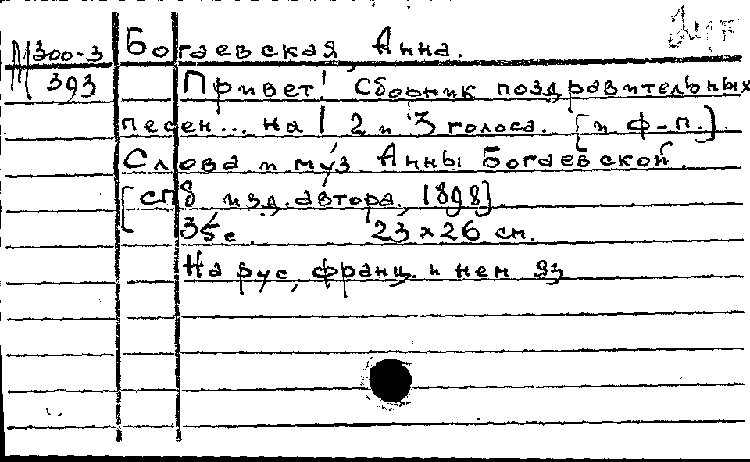 М 300-3
393
Богаевская, Анна.
Привет! Сборник поздравительных
песен... на 1 2 и 3 голоса. [и ф-п.].
Слова и муз Анны Богаевской.
[СПб изд. автора, 1898]
35 с. 23 х 26 см.
На рус, франц. и нем яз